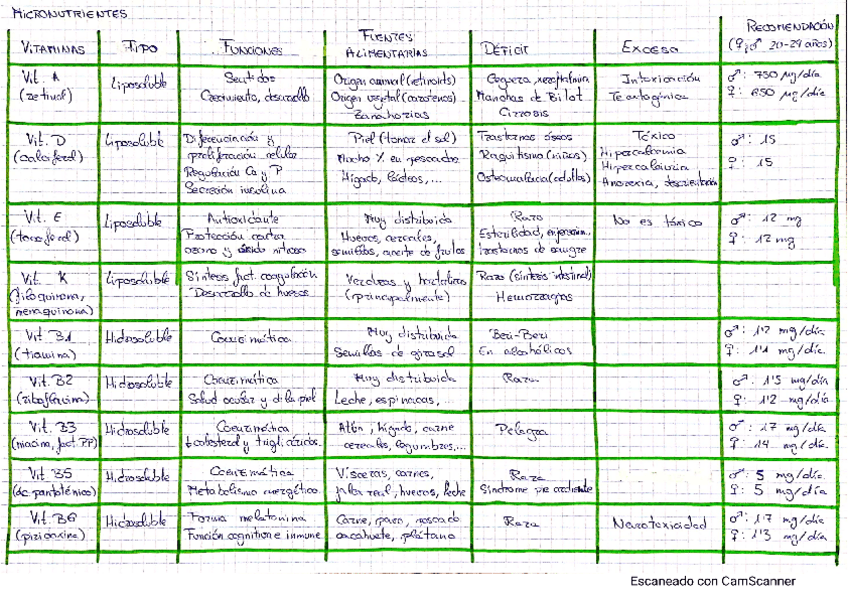 MICRONUTRIENTES
VITAMINAS TIPO FUNCIONES FUENTES ALIMENTARIAS DÉFICIT EXCESO RECOMENDACIÓN (♀,♂ 20-29 años)
Vit. A (retinol)
Liposoluble
Sentidos
Crecimiento, desarrollo
Origen animal (retinoids)
Origen vegetal (carotenos)
Zanahorias
Ceguera, xeroftalmia
Manchas de Bitot
Cirrosis
Intoxicación
Teratogénica
♂: 750 µg/día
♀: 650 µg/día
Vit. D
(calciferol)
Liposoluble
Diferenciación y
proliferación celular
Regulación Ca y P
Secreción insulina
Piel (tomar el sol)
Mucho % en pescados
Hígado, lácteos,...
Trastornos óseos
Raquitismo (niños)
Osteomalacia (adultos)
Tóxico
Hipercalcemia
Hipercalciuria
Anorexia,
♂: 15
♀: 15
Vit. E
(tocoferol)
Liposoluble
Antioxidante
Protección contra
ozono y óxido nitroso
Muy distribuida
Huevos, cereales,
semillas, aceite de
Raro
Esterilidad,
trastornos de sangre
No es tóxico
♂: 12 mg
♀: 12 mg
Vit. K
(filoquinona,
menaquinona)
Liposoluble
Síntesis fact. coagulación
Desarrollo de huesos
Verduras y hortalizas
(principalmente)
Raro (síntesis intestinal)
Hemorragias
Vit. B1
(tiamina)
Hidrosoluble
Coenzimática
Muy distribuida
Semillas de girasol
Beri-Beri
En alcohólicos
♂: 1'2 mg/día
♀: 1'1 mg/día
Vit. B2
(riboflavina)
Hidrosoluble
Coenzimática
Salud ocular y de la piel
Muy distribuida
Leche, espinacas,...
Raro
♂: 1'5 mg/día
♀: 1'2 mg/día
Vit. B3
(niacina, fact. PP)
Hidrosoluble
Coenzimática
↓colesterol y triglicéridos
Atún, hígado, carne
cereales, legumbres,...
Pelagra
♂: 17 mg/día
♀: 14 mg/día
Vit B5
(ác. pantoténico)
Hidrosoluble
Coenzimática
Metabolismo energético
Vísceras, carnes,
jalea real, huevos, leche
Raro
Síndrome pie ardiente
♂: 5 mg/día
♀: 5 mg/día
Vit. B6
(piridoxina)
Hidrosoluble
Forma melatonina
Función cognitiva e inmune
Carne, pavo, pescado
cacahuete, plátano
Raro
Neurotoxicidad
♂: 1'7 mg/día
♀: 1'3 mg/día
Escaneado con CamScanner